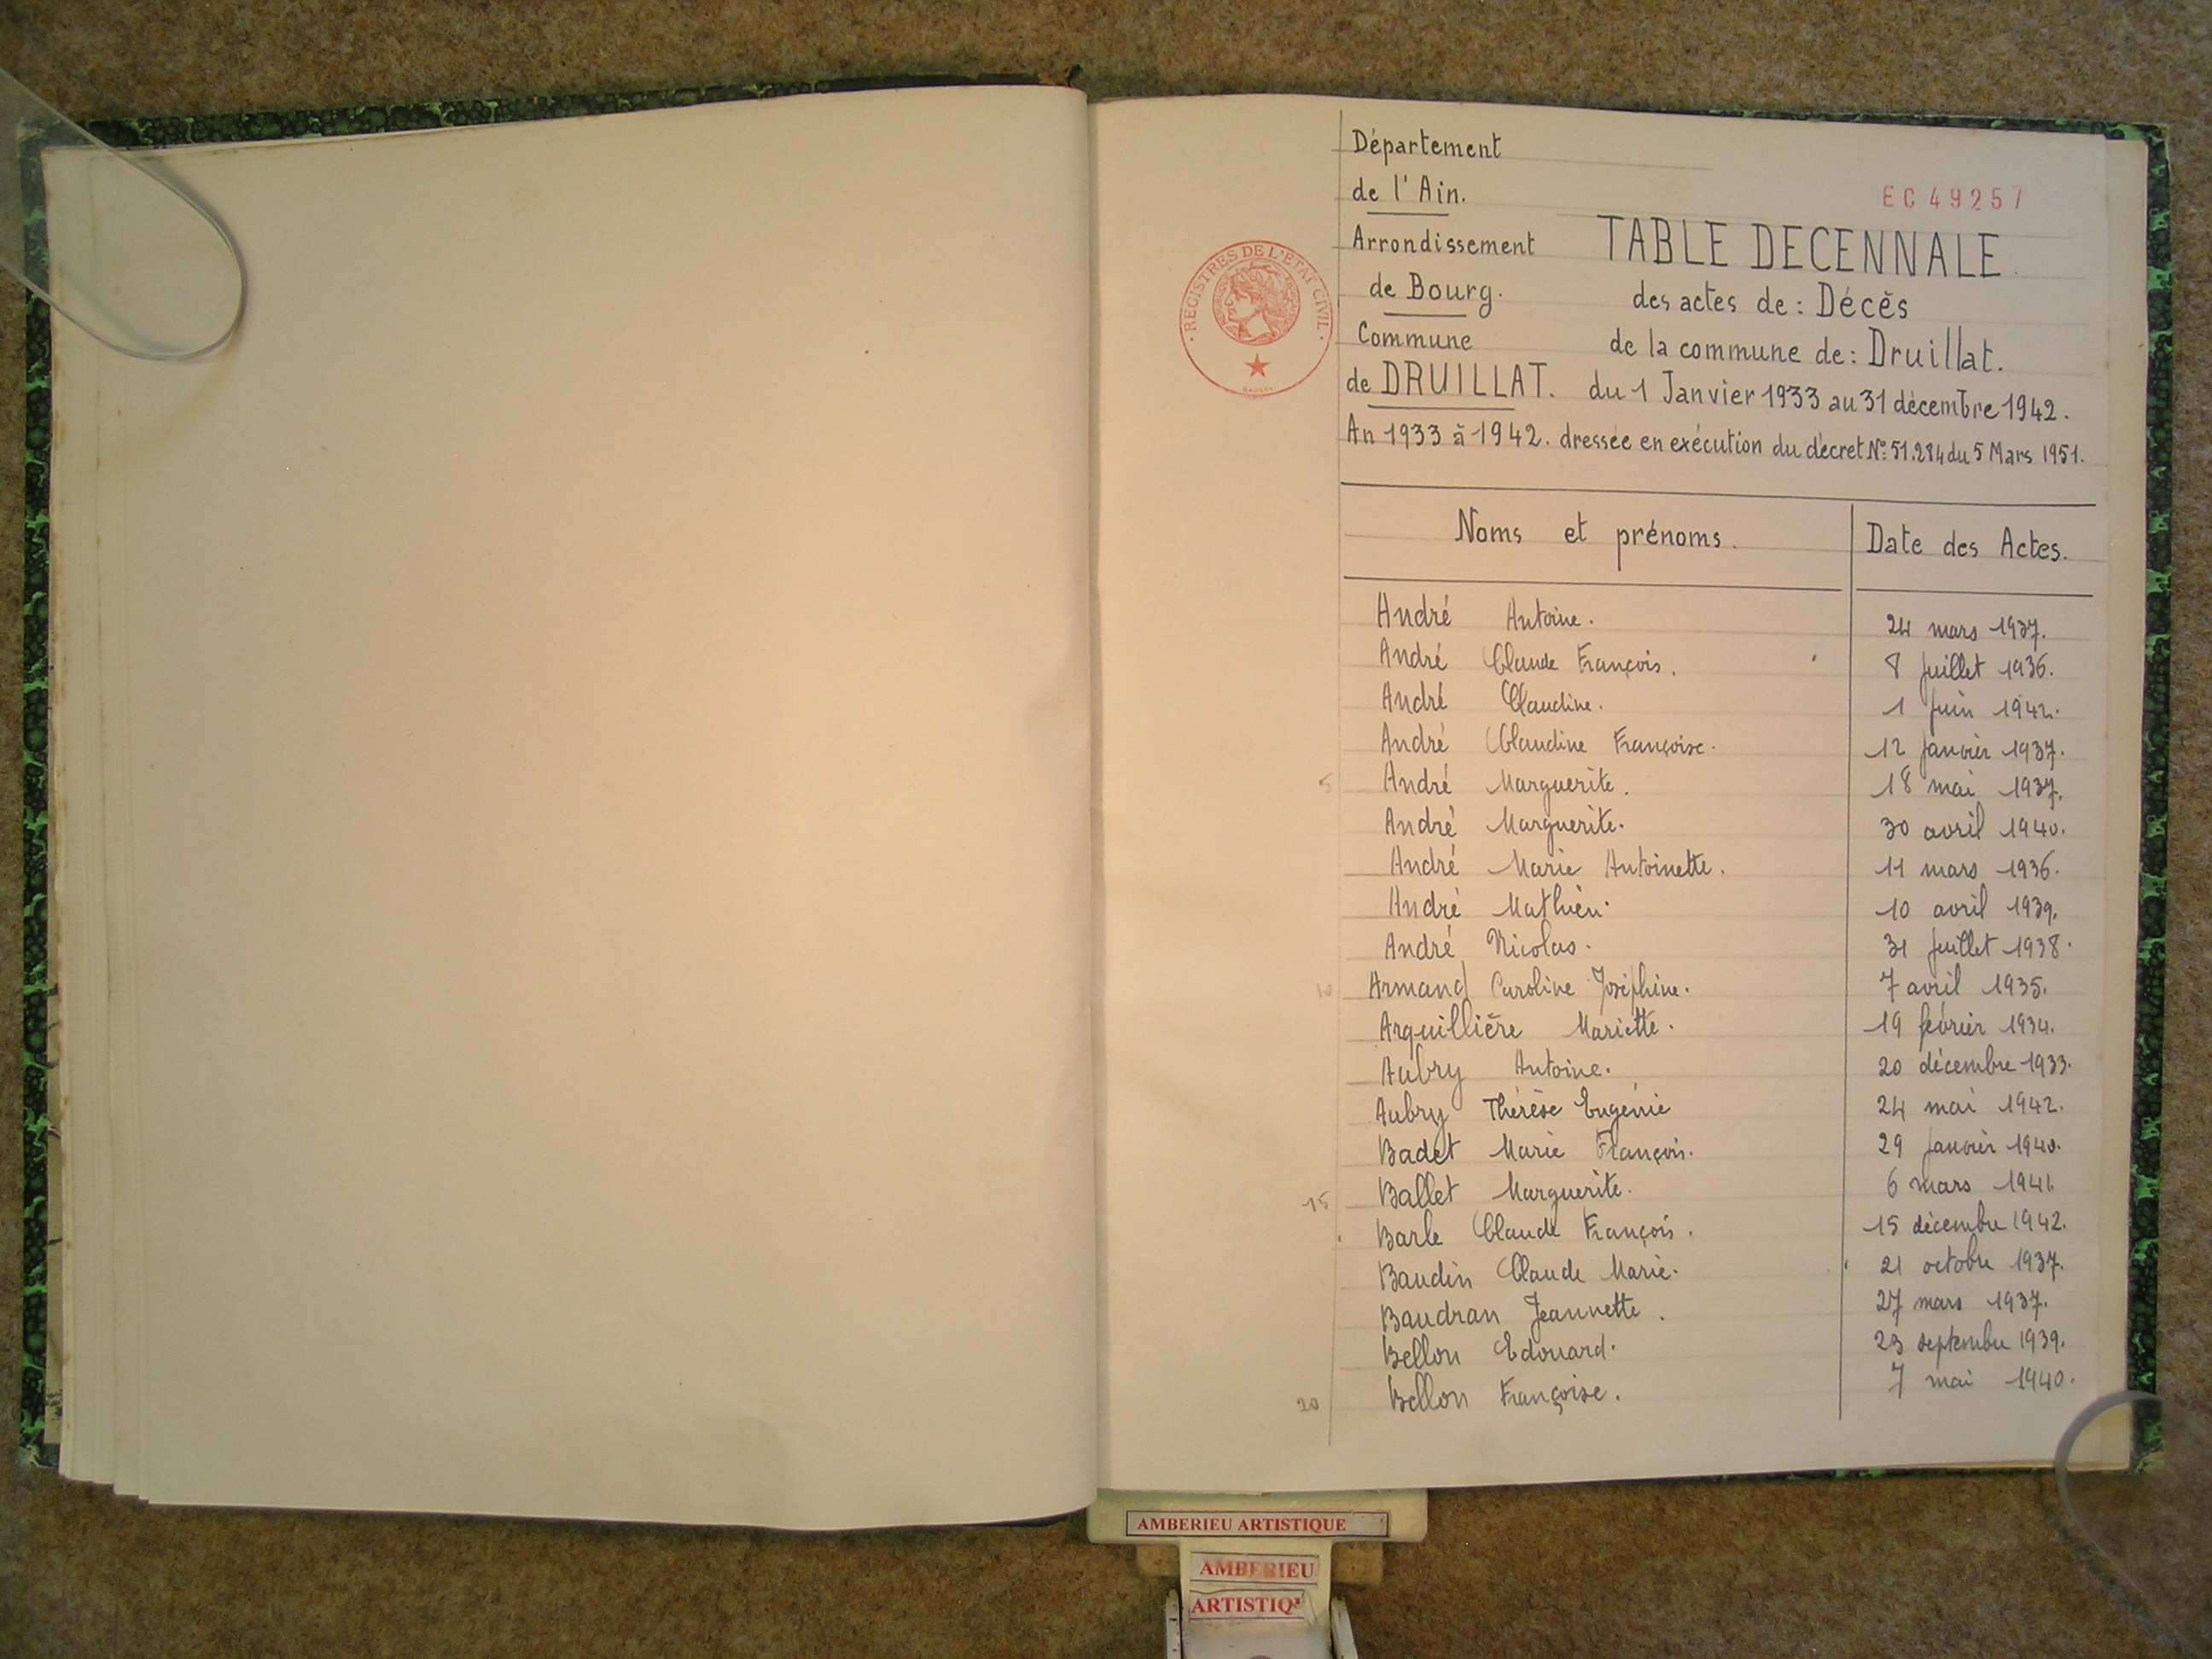 Département
de l'Ain.
EC 49257
Arrondissement
TABLE DECENNALE
de Bourg.
des actes de : Décès
Commune
de la commune de : Druillat.
de DRUILLAT.
du 1 Janvier 1933 au 31 décembre 1942.
An 1933 à 1942. dressée en exécution du décret N° 51.284 du 5 Mars 1951.
REGISTRES DE L'ETAT CIVIL
Noms et prénoms. Date des Actes.
André Antoine. 24 mars 1937.
André Claude François. 8 Juillet 1936.
André Claudine. 1 Juin 1942.
André Claudine Françoise. 12 Janvier 1937.
5 André Marguerite. 18 mai 1937.
André Marguerite. 30 avril 1940.
André Marie Antoinette. 11 mars 1936.
André Mathieu. 10 avril 1939.
André Nicolas. 31 Juillet 1938.
10 Armand Caroline Joséphine. 7 avril 1935.
Arquillière Mariette. 19 février 1934.
Aubry Antoine. 20 décembre 1933.
Aubry Thérèse Eugénie 24 mai 1942.
Badet Marie François. 29 Janvier 1940.
15 Ballet Marguerite. 6 mars 1941.
Barle Claude François. 15 décembre 1942.
Baudin Claude Marie. 21 octobre 1937.
Baudran Jeannette. 27 mars 1937.
Bellon Edouard. 23 septembre 1939.
20 Bellon Françoise. 7 mai 1940.
AMBERIEU ARTISTIQUE
AMBERIEU
ARTISTIQ